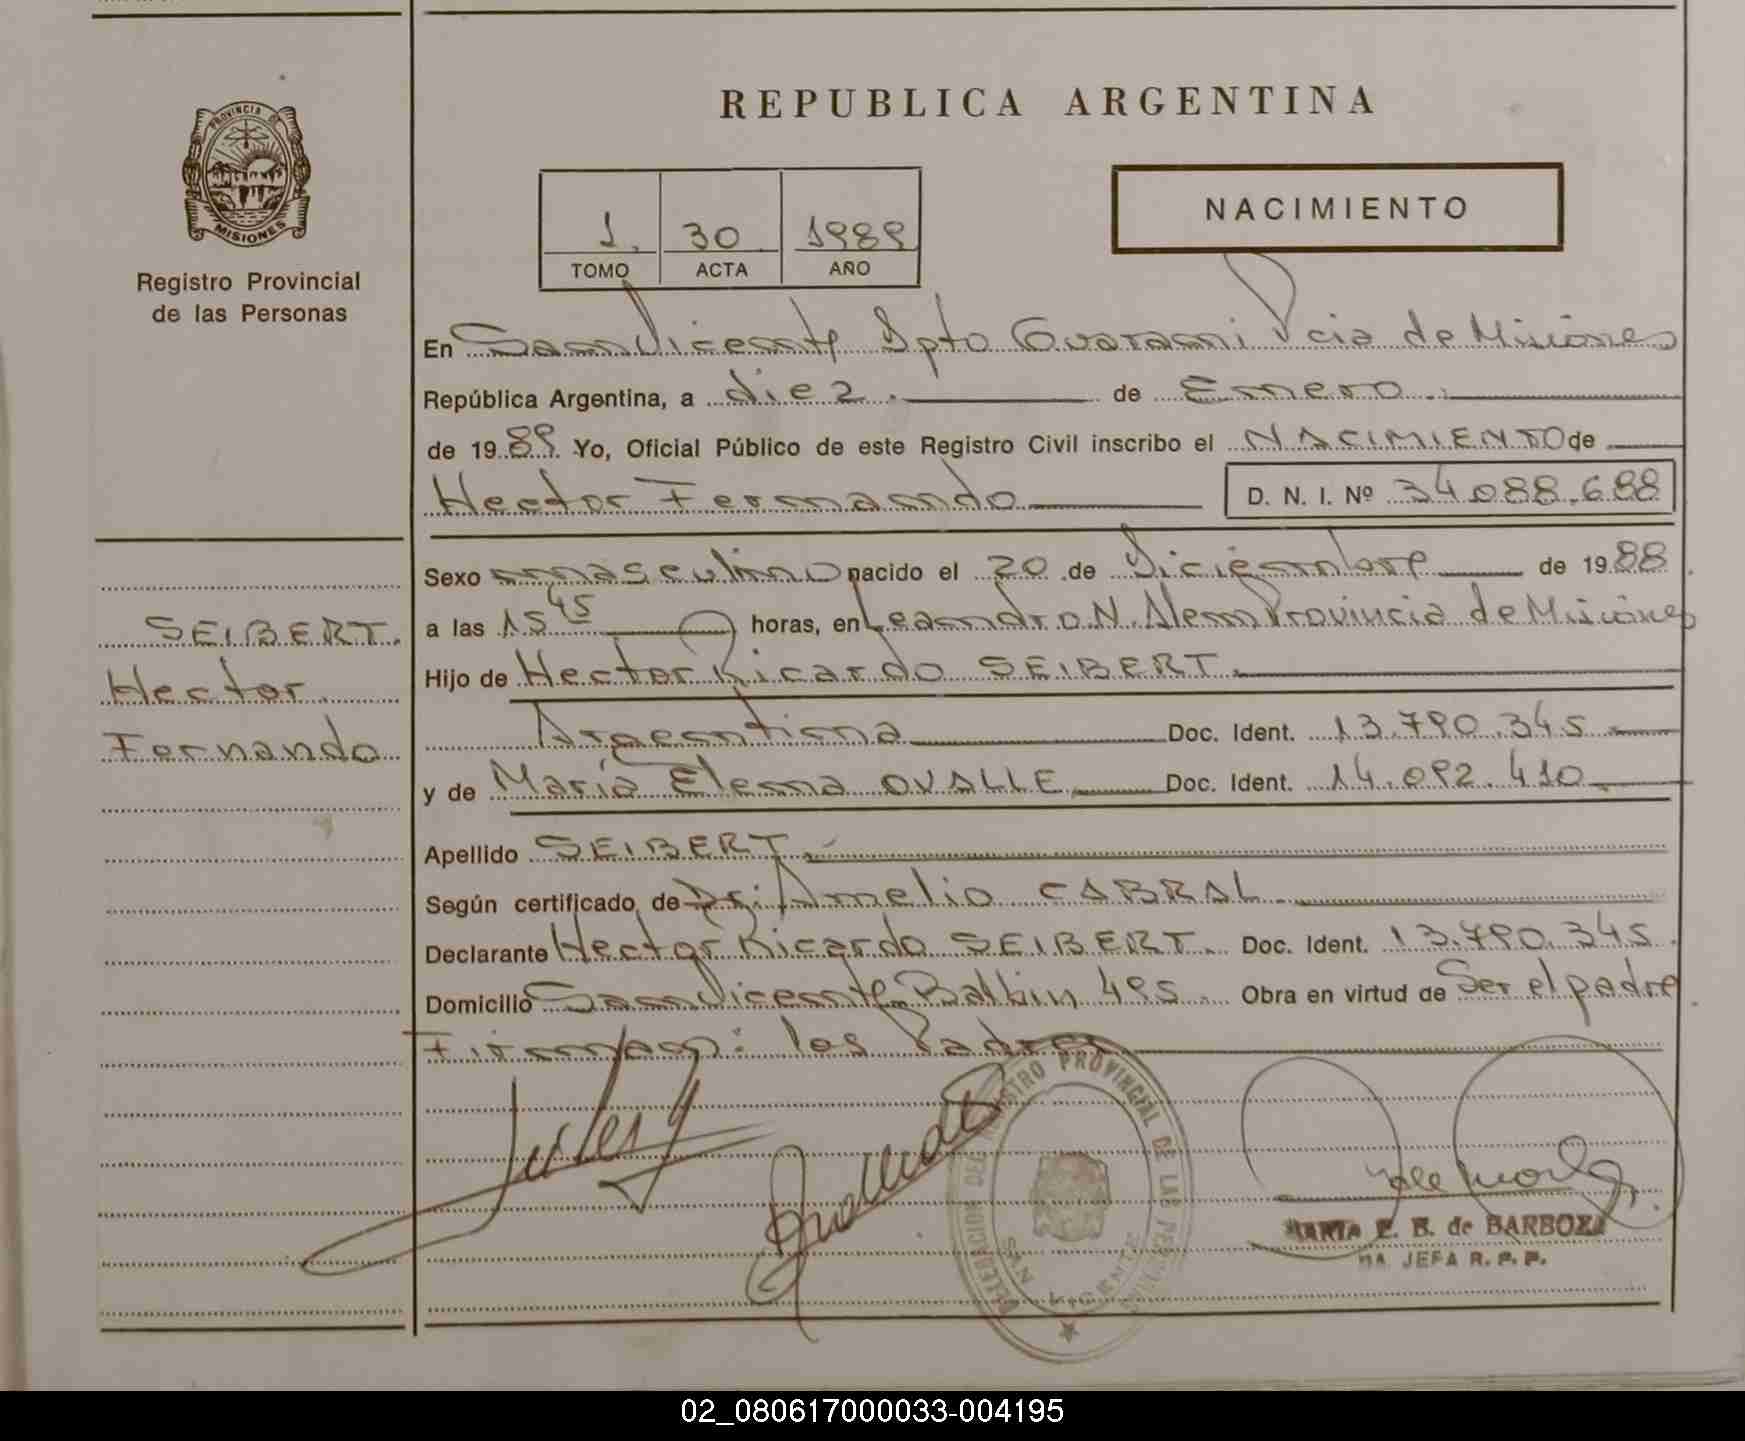 REPUBLICA ARGENTINA
PROVINCIA DE
MISIONES
Registro Provincial
de las Personas
1. 30 1989
TOMO ACTA AÑO
NACIMIENTO
En San Vicente Dpto Guarani Pcia de Misiones
República Argentina, a diez. de Enero.
de 1989 Yo, Oficial Público de este Registro Civil inscribo el NACIMIENTO de
Hector Fernando D. N. I. Nº 34.088.688
Sexo masculino nacido el 20 de Diciembre de 1988
a las 15 45 horas, en Leandro N. Alem Provincia de Misiones
Hijo de Hector Ricardo SEIBERT.
Argentina Doc. Ident. 13.790.345
y de María Elena OVALLE Doc. Ident. 14.092.410
Apellido SEIBERT.
Según certificado de Dr: Amelio CABRAL.
Declarante Hector Ricardo SEIBERT. Doc. Ident. 13.790.345.
Domicilio San Vicente Balbin 495. Obra en virtud de Ser el padre
Firman: los Padres
SEIBERT.
Hector
Fernando
DELEGACION DEL REGISTRO PROVINCIAL DE LAS PERSONAS
SAN VICENTE
MARIA E. B. de BARBOZA
JEFA R. P. P.
02_080617000033-004195